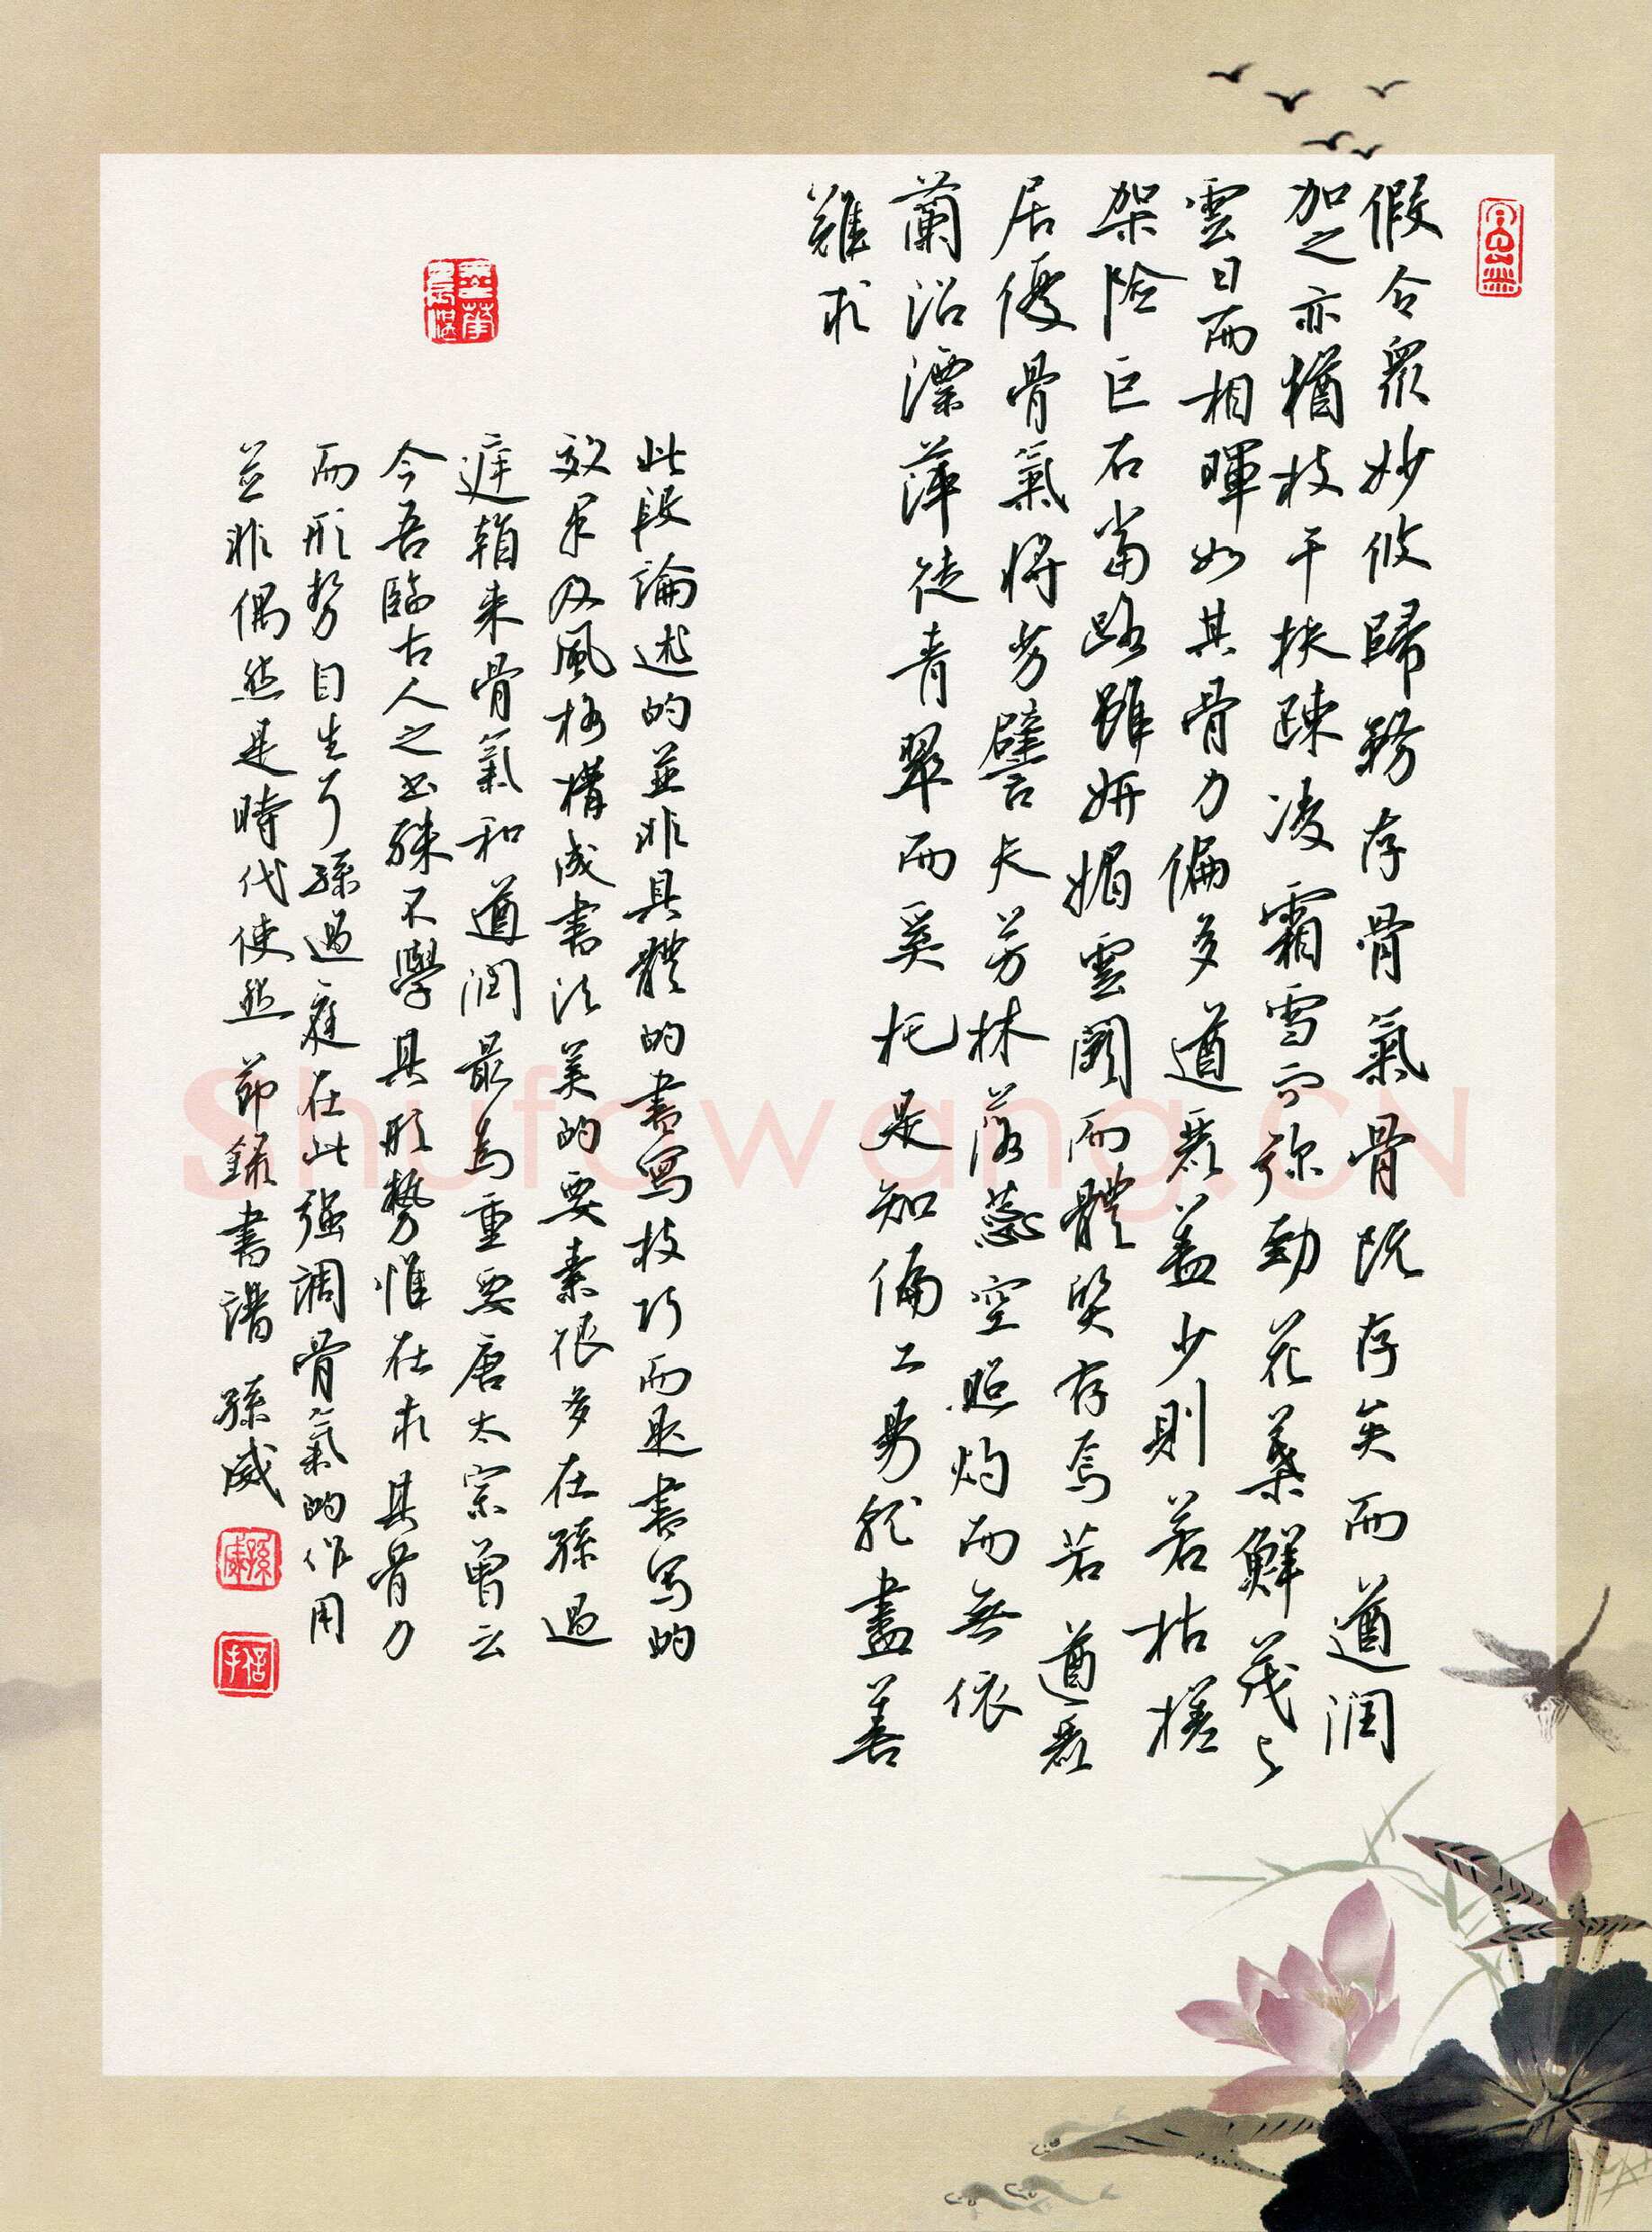 假令眾妙攸歸務存骨氣骨既存矣而遒潤
加之亦猶枝干扶疎凌霜雪而弥勁花葉鮮茂與
雲日而相暉如其骨力偏多遒麗蓋少則若枯槎
架險巨石當路雖妍媚雲闕而體質存焉若遒麗
居優骨氣將劣譬夫芳林落蕊空照灼而無依
蘭沼漂萍徒青翠而奚托是知偏工易就盡善
難求
此段論述的並非具體的書寫技巧而是書写的
效果及風格構成書法美的要素很多在孫過
庭看来骨氣和遒潤最為重要唐太宗曾云
今吾臨古人之書殊不學其形勢惟在求其骨力
而形勢自生耳孫過庭在此强調骨氣的作用
並非偶然是時代使然 節錄書譜 孫威
孫威
信手
Shufawang.CN